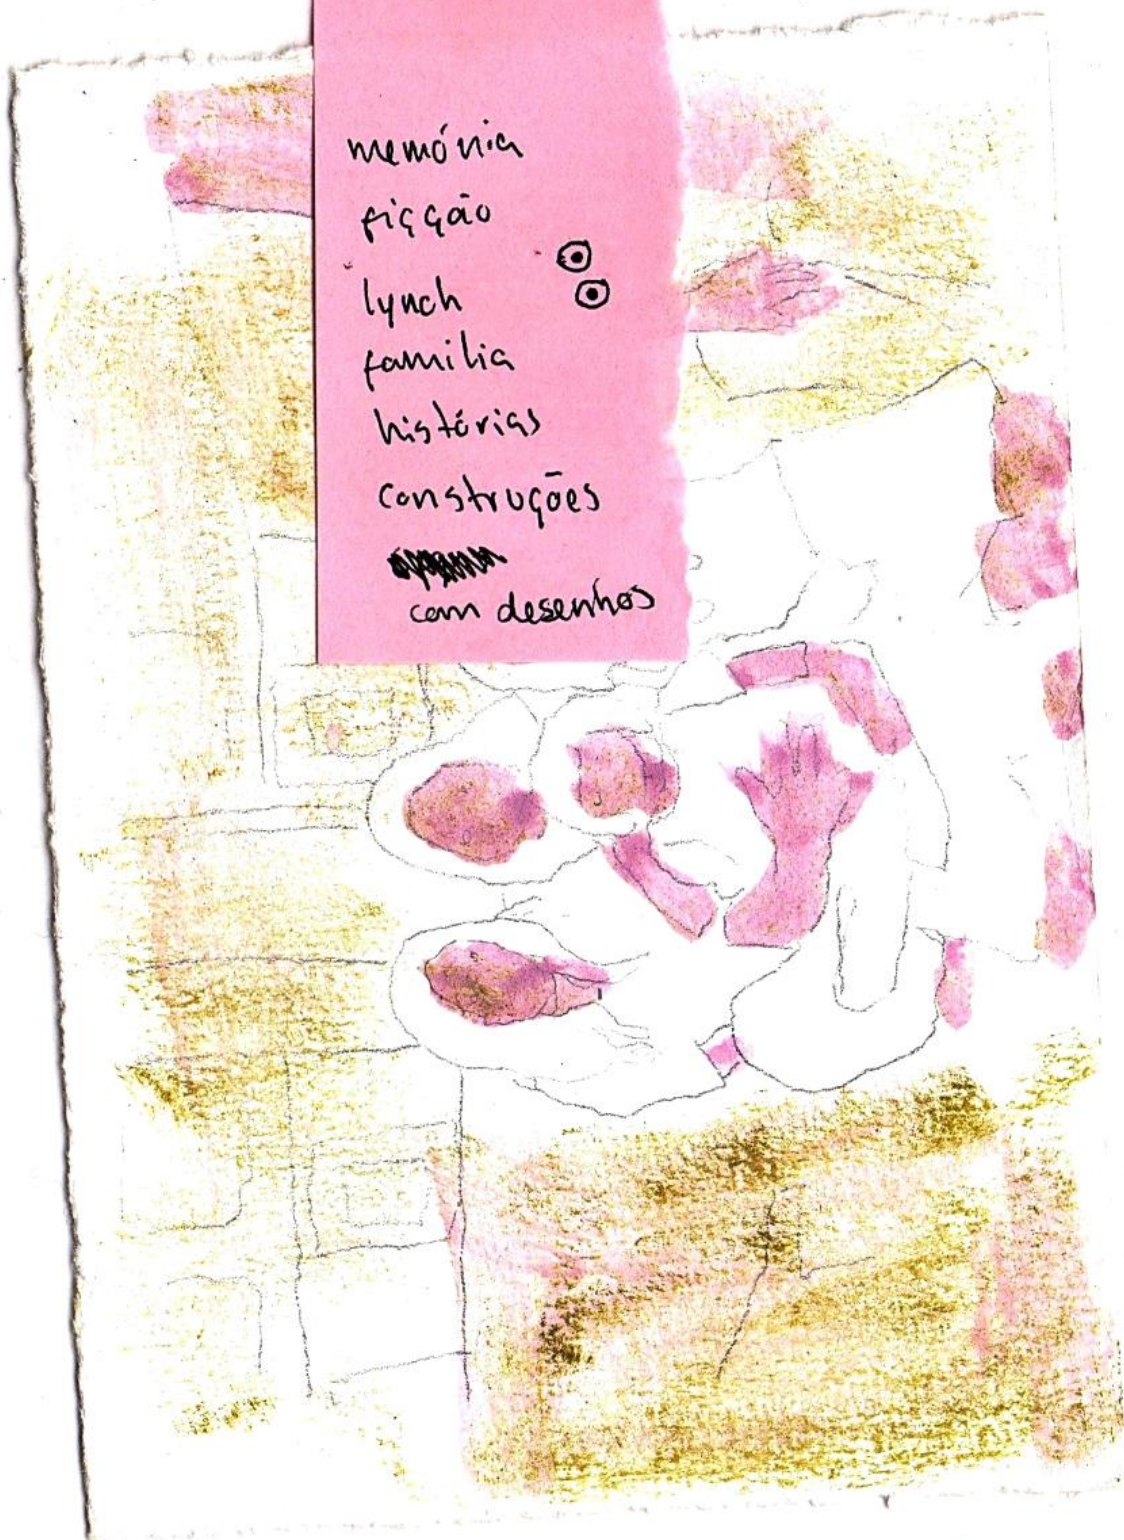 memória
ficção
lynch
familia
histórias
construções
com desenhos